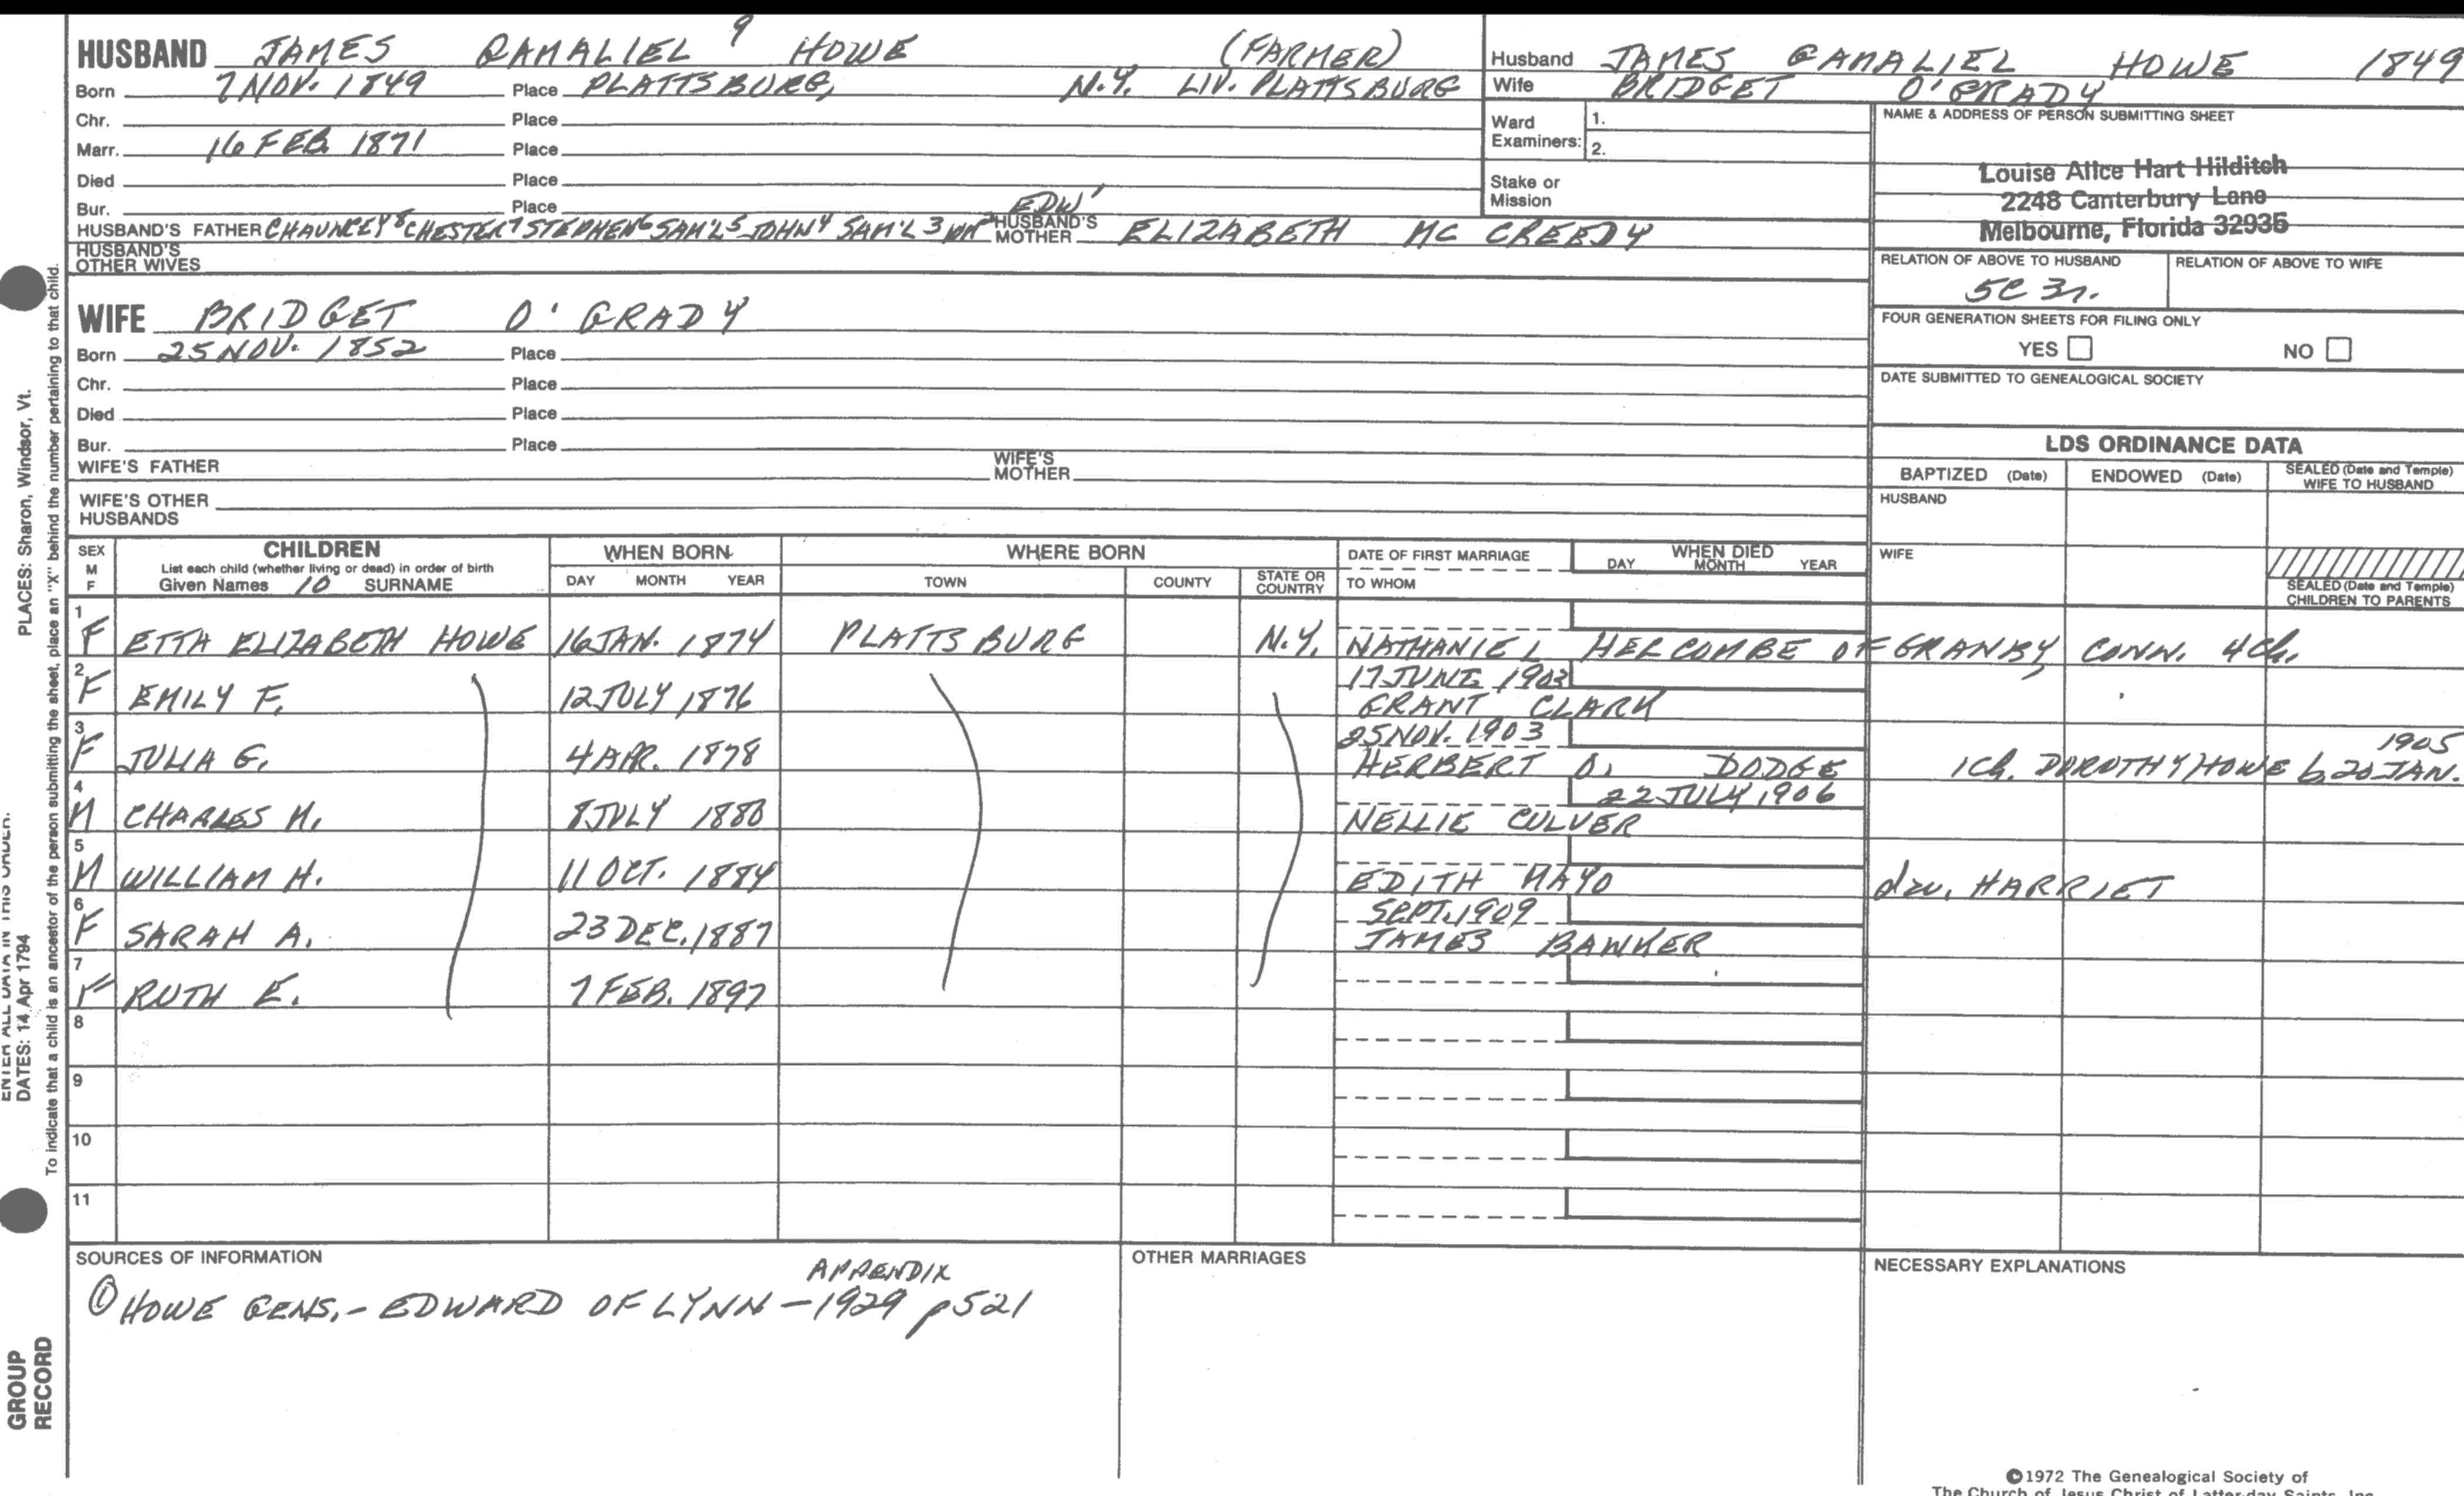 HUSBAND JAMES GAMALIEL 9 HOWE (FARMER)
Born 7 NOV. 1849 Place PLATTSBURG, N.Y. LIV. PLATTSBURG
Chr. Place
Marr. 16 FEB. 1871 Place
Died Place
Bur. Place
HUSBAND'S FATHER CHAUNCEY 8 CHESTER 7 STEPHEN 6 SAM'L 5 JOHN 4 SAM'L 3 WM 2 EDW 1 HUSBAND'S MOTHER ELIZABETH MC CREEDY
HUSBAND'S OTHER WIVES
WIFE BRIDGET O'GRADY
Born 25 NOV. 1852 Place
Chr. Place
Died Place
Bur. Place
WIFE'S FATHER WIFE'S MOTHER
WIFE'S OTHER HUSBANDS
Husband JAMES GAMALIEL HOWE 1849
Wife BRIDGET O'GRADY
Ward Examiners: 1.
2.
Stake or Mission
NAME & ADDRESS OF PERSON SUBMITTING SHEET
Louise Alice Hart Hilditch
2248 Canterbury Lane
Melbourne, Florida 32935
RELATION OF ABOVE TO HUSBAND RELATION OF ABOVE TO WIFE
5C 3r.
FOUR GENERATION SHEETS FOR FILING ONLY
YES NO
DATE SUBMITTED TO GENEALOGICAL SOCIETY
LDS ORDINANCE DATA
BAPTIZED (Date) ENDOWED (Date) SEALED (Date and Temple) WIFE TO HUSBAND
HUSBAND
WIFE
SEALED (Date and Temple) CHILDREN TO PARENTS
SEX M F CHILDREN WHEN BORN WHERE BORN DATE OF FIRST MARRIAGE WHEN DIED
List each child (whether living or dead) in order of birth
Given Names 10 SURNAME DAY MONTH YEAR TOWN COUNTY STATE OR COUNTRY TO WHOM DAY MONTH YEAR
1 F ETTA ELIZABETH HOWE 16 JAN. 1874 PLATTSBURG N.Y. NATHANIEL HELCOMBE OF GRANBY CONN. 4 Ch.
17 JUNE 1903
2 F EMILY F. 12 JULY 1876 GRANT CLARK
25 NOV. 1903 1905
3 F JULIA G. 4 APR. 1878 HERBERT O. DODGE 1 Ch. DOROTHY HOWE b. 20 JAN.
22 JULY 1906
4 M CHARLES M. 8 JULY 1880 NELLIE CULVER
5 M WILLIAM H. 11 OCT. 1884 EDITH MAYO dau. HARRIET
SEPT. 1909
6 F SARAH A. 23 DEC. 1887 JAMES BAWKER
7 F RUTH E. 7 FEB. 1897
8
9
10
11
SOURCES OF INFORMATION
APPENDIX
① HOWE GENS. - EDWARD OF LYNN - 1929 p 521
OTHER MARRIAGES
NECESSARY EXPLANATIONS
©1972 The Genealogical Society of
The Church of Jesus Christ of Latter-day Saints, Inc.
PLACES: Sharon, Windsor, Vt.
ENTER ALL DATA IN THIS ORDER:
DATES: 14 Apr 1794
To indicate that a child is an ancestor of the person submitting the sheet, place an "X" behind the number pertaining to that child.
GROUP
RECORD